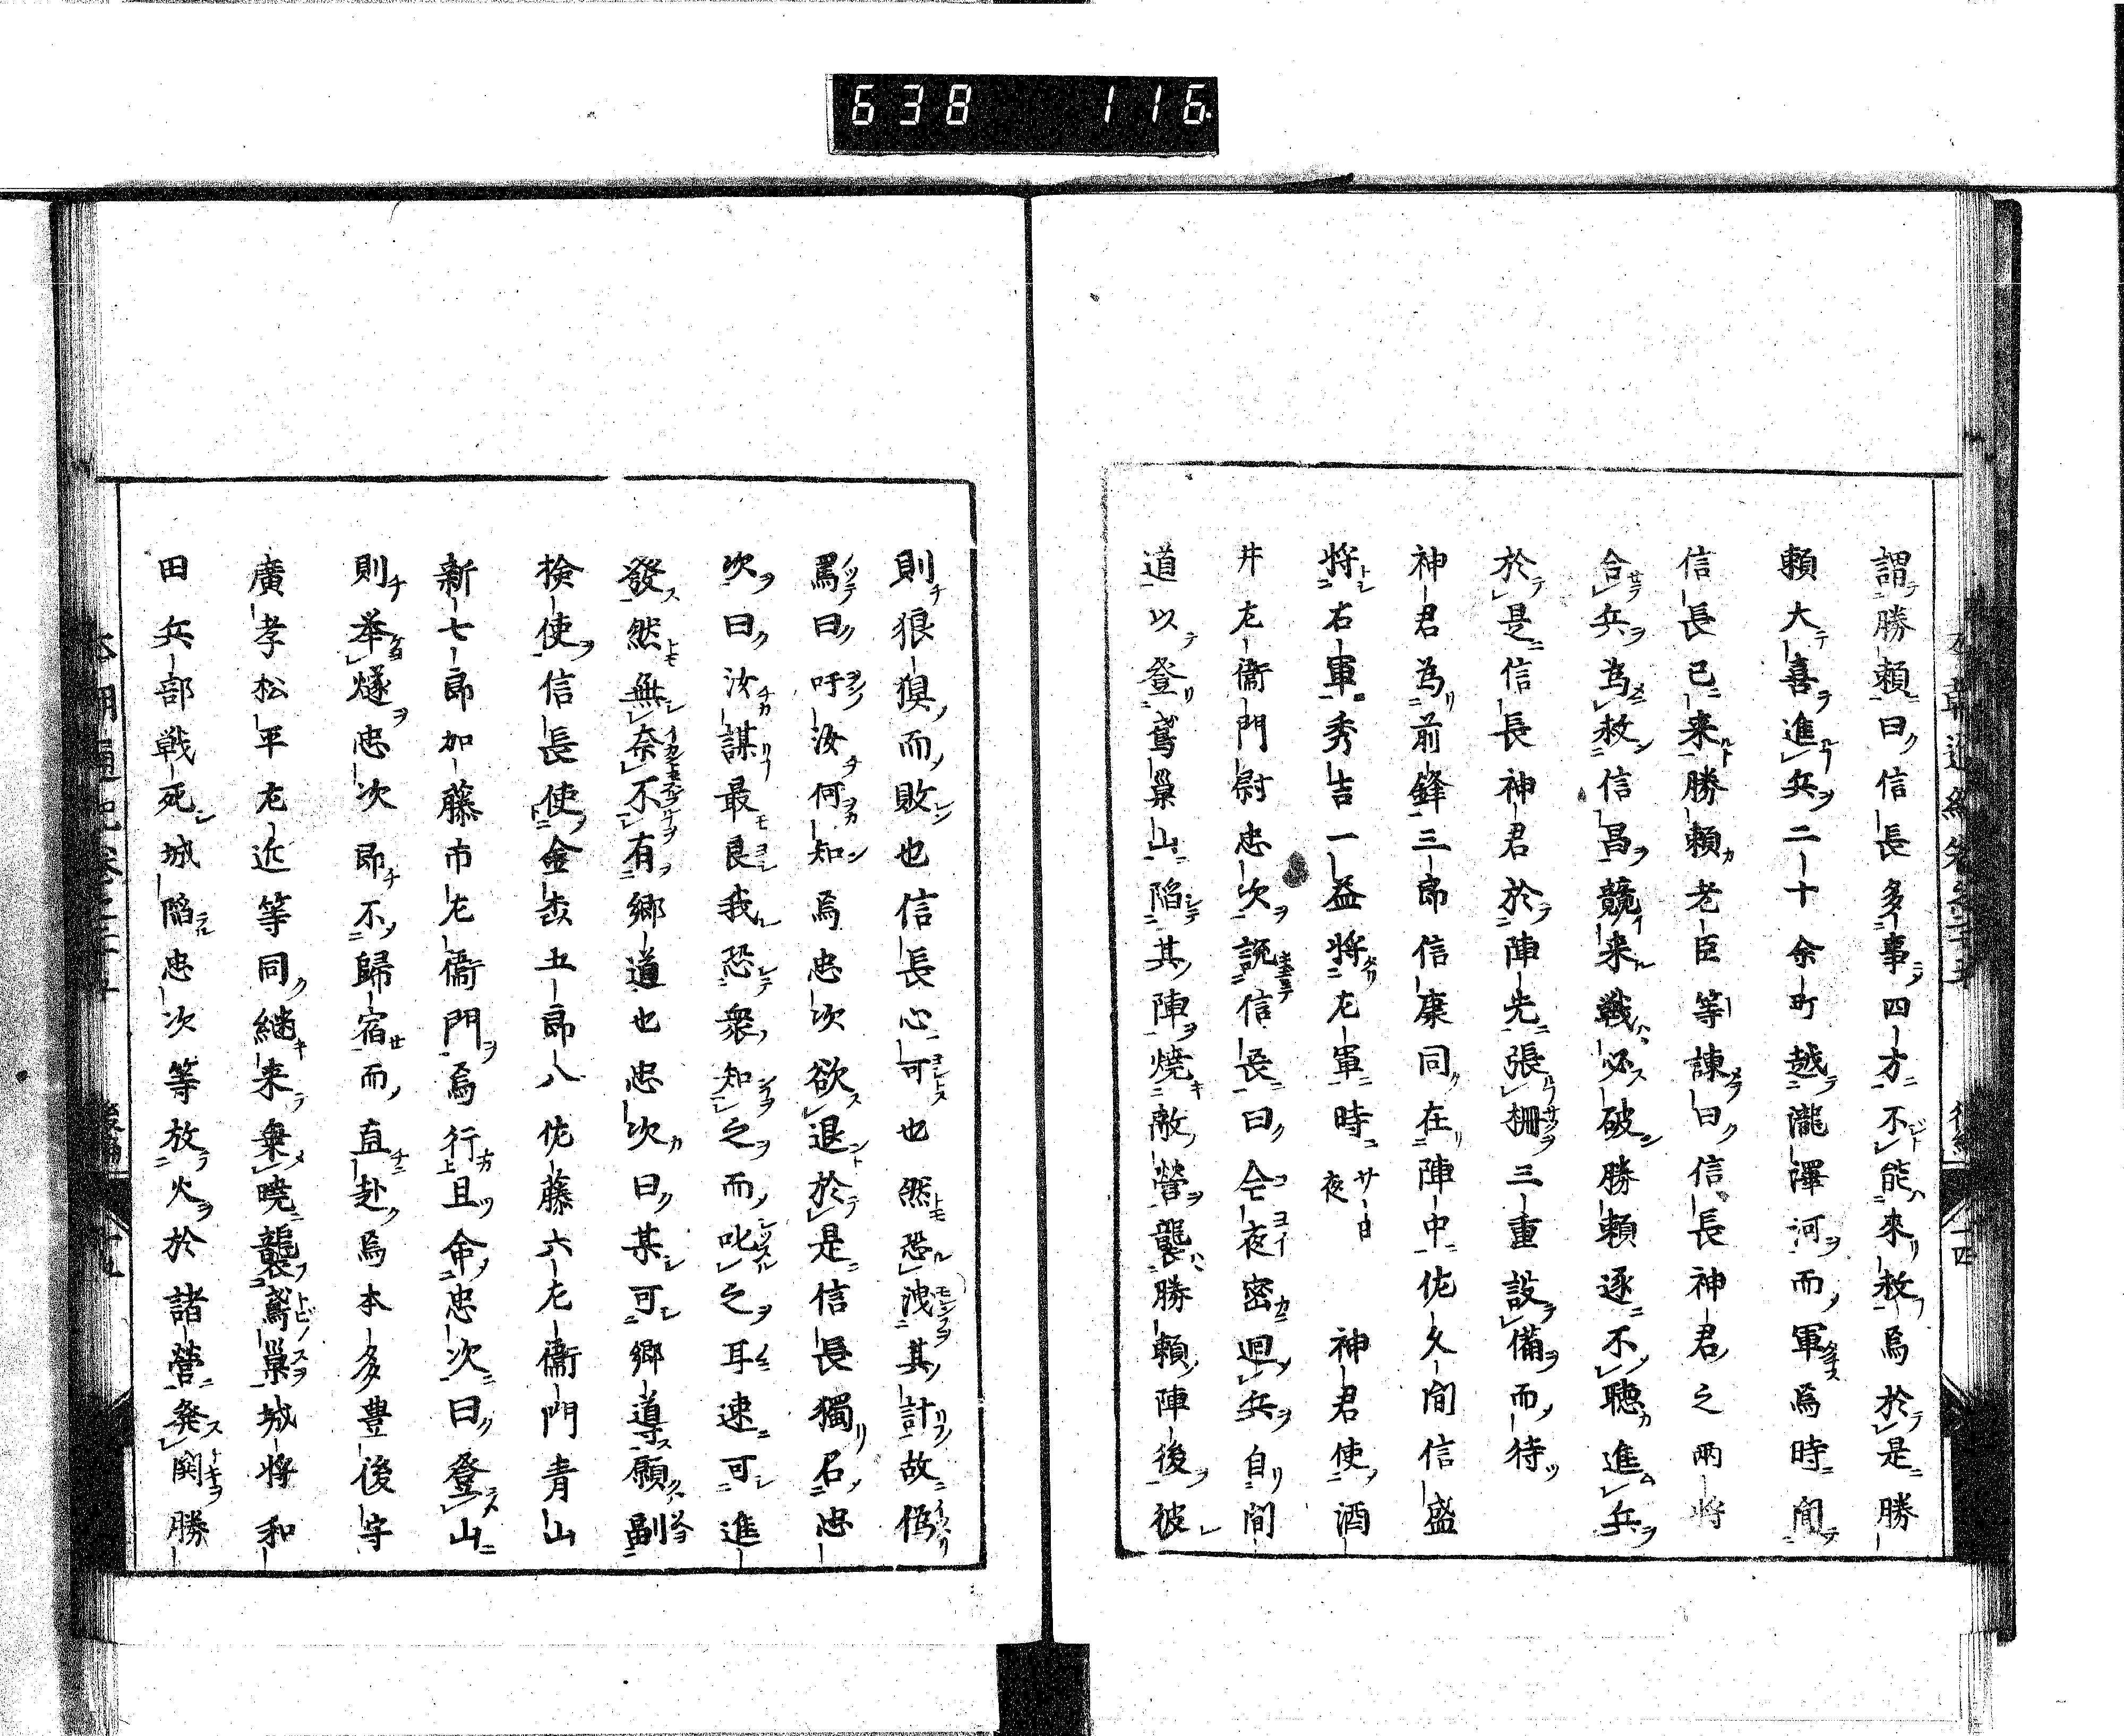 638 116
謂勝頼曰信長多事四方不能來救焉於是勝
頼大喜進兵二十余町越瀧澤河而軍焉時間
信長已来勝頼老臣等諌曰信長神君之兩将
合兵為救信昌競来戦必破勝頼逐不聴進兵
於是信長神君於陣先張柵三重設備而待
神君為前鋒三郎信康同在陣中佐久間信盛
将右軍秀吉一益将左軍時廿日夜神君使酒
井左衛門尉忠次説信長曰今夜密廻兵自間
道以登鳶巣山陥其陣焼敵營襲勝頼陣後彼
則狼狽而敗也信長心可也然恐洩其計故偽
罵曰吁汝何知焉忠次欲退於是信長獨召忠
次曰汝謀最良我恐衆知之而叱之耳速可進
發然無奈不有郷道也忠次曰某可郷導願副
撿使信長使金森五郎八佐藤六左衛門青山
新七郎加藤市左衛門焉行且命忠次曰登山
則举燧忠次即不歸宿而直赴焉本多豊後守
廣孝松平左近等同継来乗曉襲鳶巣城将和
田兵部戦死城陥忠次等放火於諸營発鬨勝